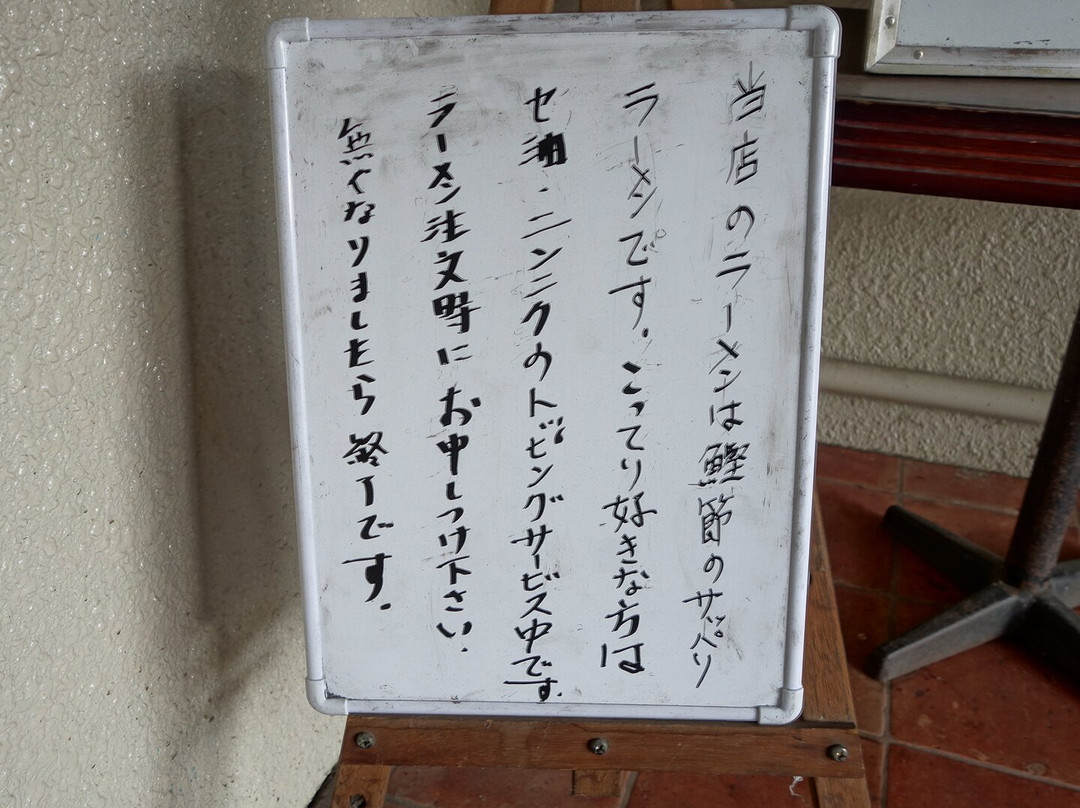 当店のラーメンは鰹節のサッパリ
ラーメンです。こってり好きな方は
セ油・ニンニクのトッピングサービス中です。
ラーメン注文時にお申しつけ下さい。
無くなりましたら終了です。